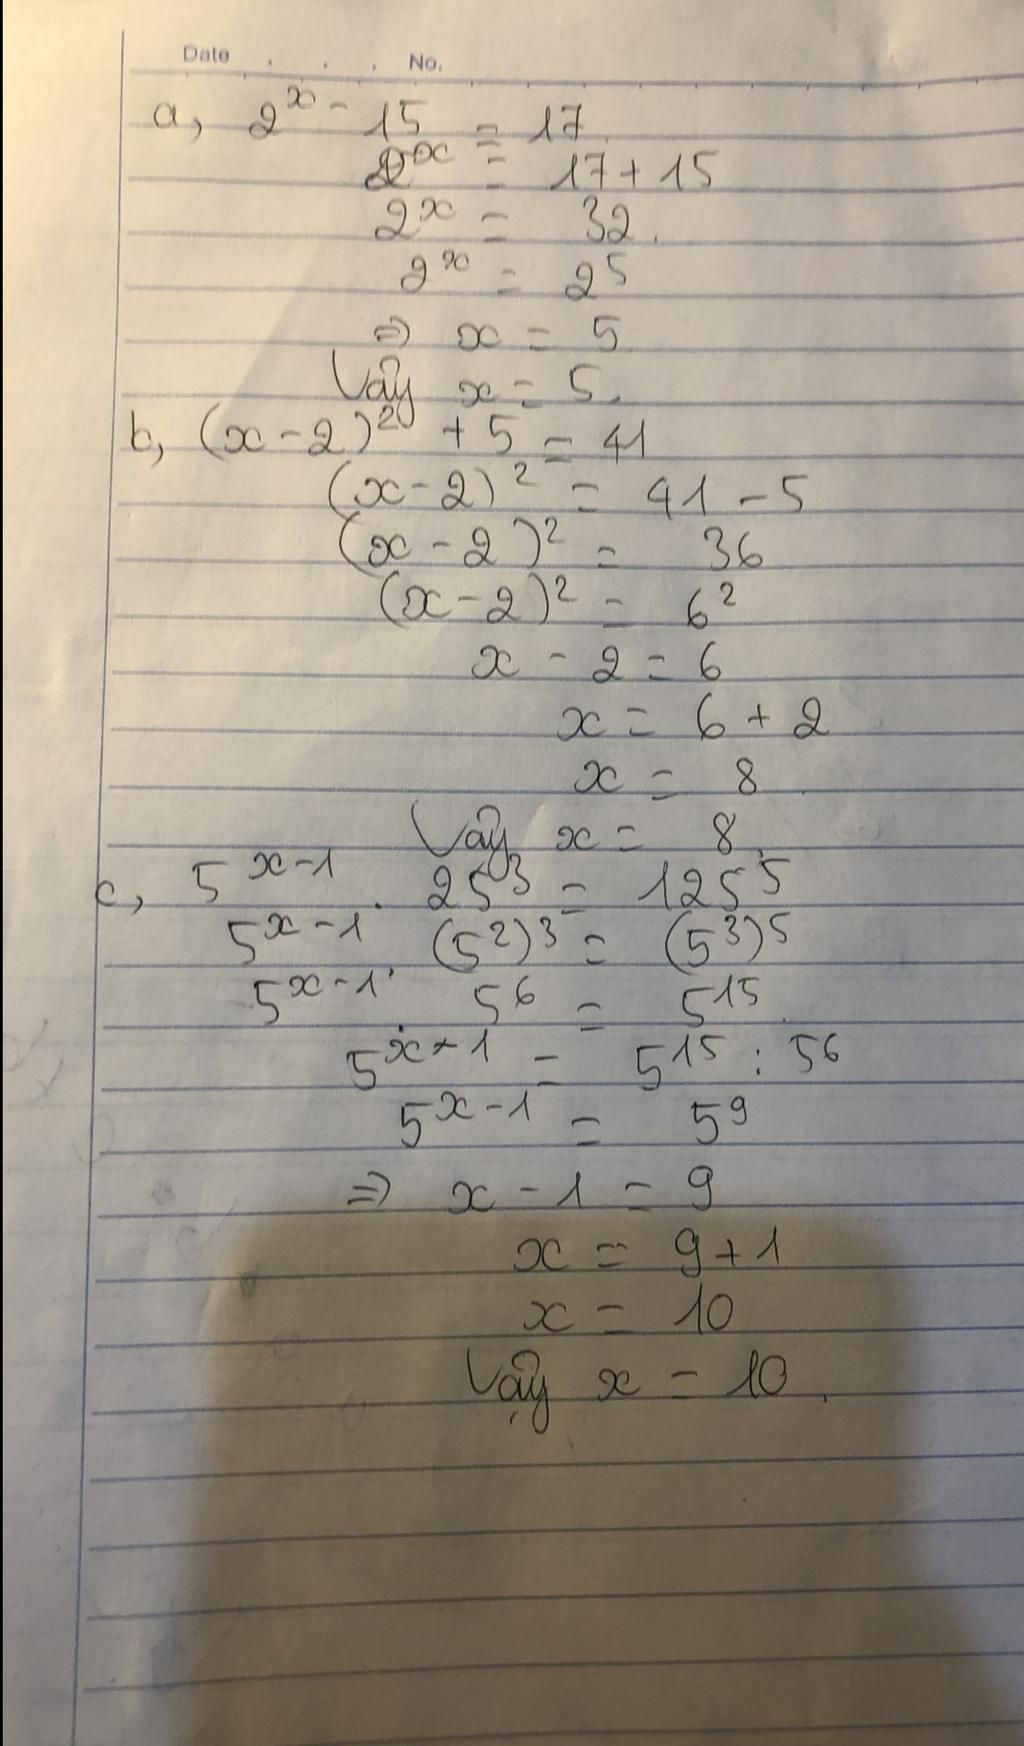 Date . . . No.
a, 2^x - 15 = 17
2^x = 17 + 15
2^x = 32.
2^x = 2^5
⇒ x = 5
Vậy x = 5.
b, (x - 2)^2 + 5 = 41
(x - 2)^2 = 41 - 5
(x - 2)^2 = 36
(x - 2)^2 = 6^2
x - 2 = 6
x = 6 + 2
x = 8
Vậy x = 8.
c, 5^{x-1} . 25^3 = 125^5
5^{x-1} . (5^2)^3 = (5^3)^5
5^{x-1} . 5^6 = 5^{15}
5^{x-1} = 5^{15} : 5^6
5^{x-1} = 5^9
⇒ x - 1 = 9
x = 9 + 1
x = 10
Vậy x = 10.